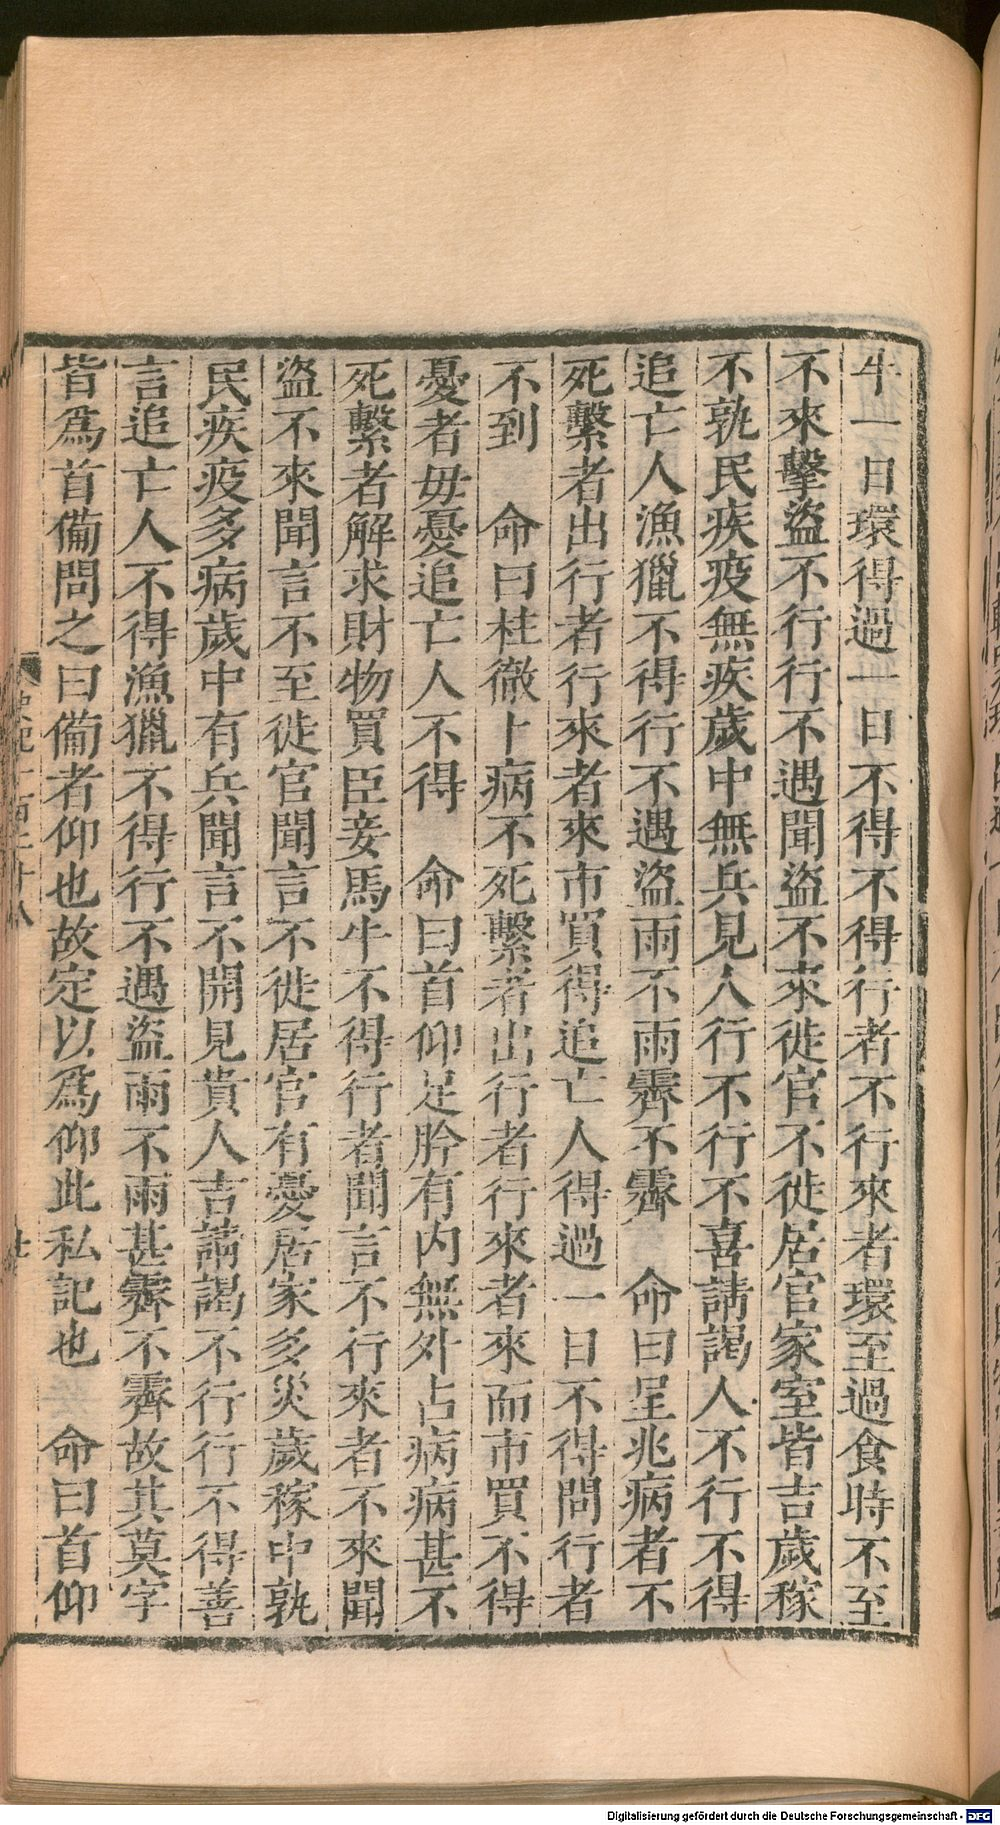 牛一日環得過一日不得不得行者不行來者環至過食時不至
不來擊盜不行行不遇聞盜不來徙官不徙居官家室皆吉歲稼
不孰民疾疫無疾歲中無兵見人行不行不喜請謁人不行不得
追亡人漁獵不得行不遇盜雨不雨霽不霽　命曰呈兆病者不
死繫者出行者行來者來市買得追亡人得過一日不得問行者
不到　命曰柱徹卜病不死繫者出行者行來者來而市買不得
憂者毋憂追亡人不得　命曰首仰足肣有內無外占病病甚不
死繫者解求財物買臣妾馬牛不得行者聞言不行來者不來聞
盜不來聞言不至徙官聞言不徙居官有憂居家多災歲稼中孰
民疾疫多病歲中有兵聞言不開見貴人吉請謁不行行不得善
言追亡人不得漁獵不得行不遇盜雨不雨甚霽不霽故其莫字
皆爲首備問之曰備者仰也故定以爲仰此私記也　命曰首仰
Digitalisierung gefördert durch die Deutsche Forschungsgemeinschaft - DFG